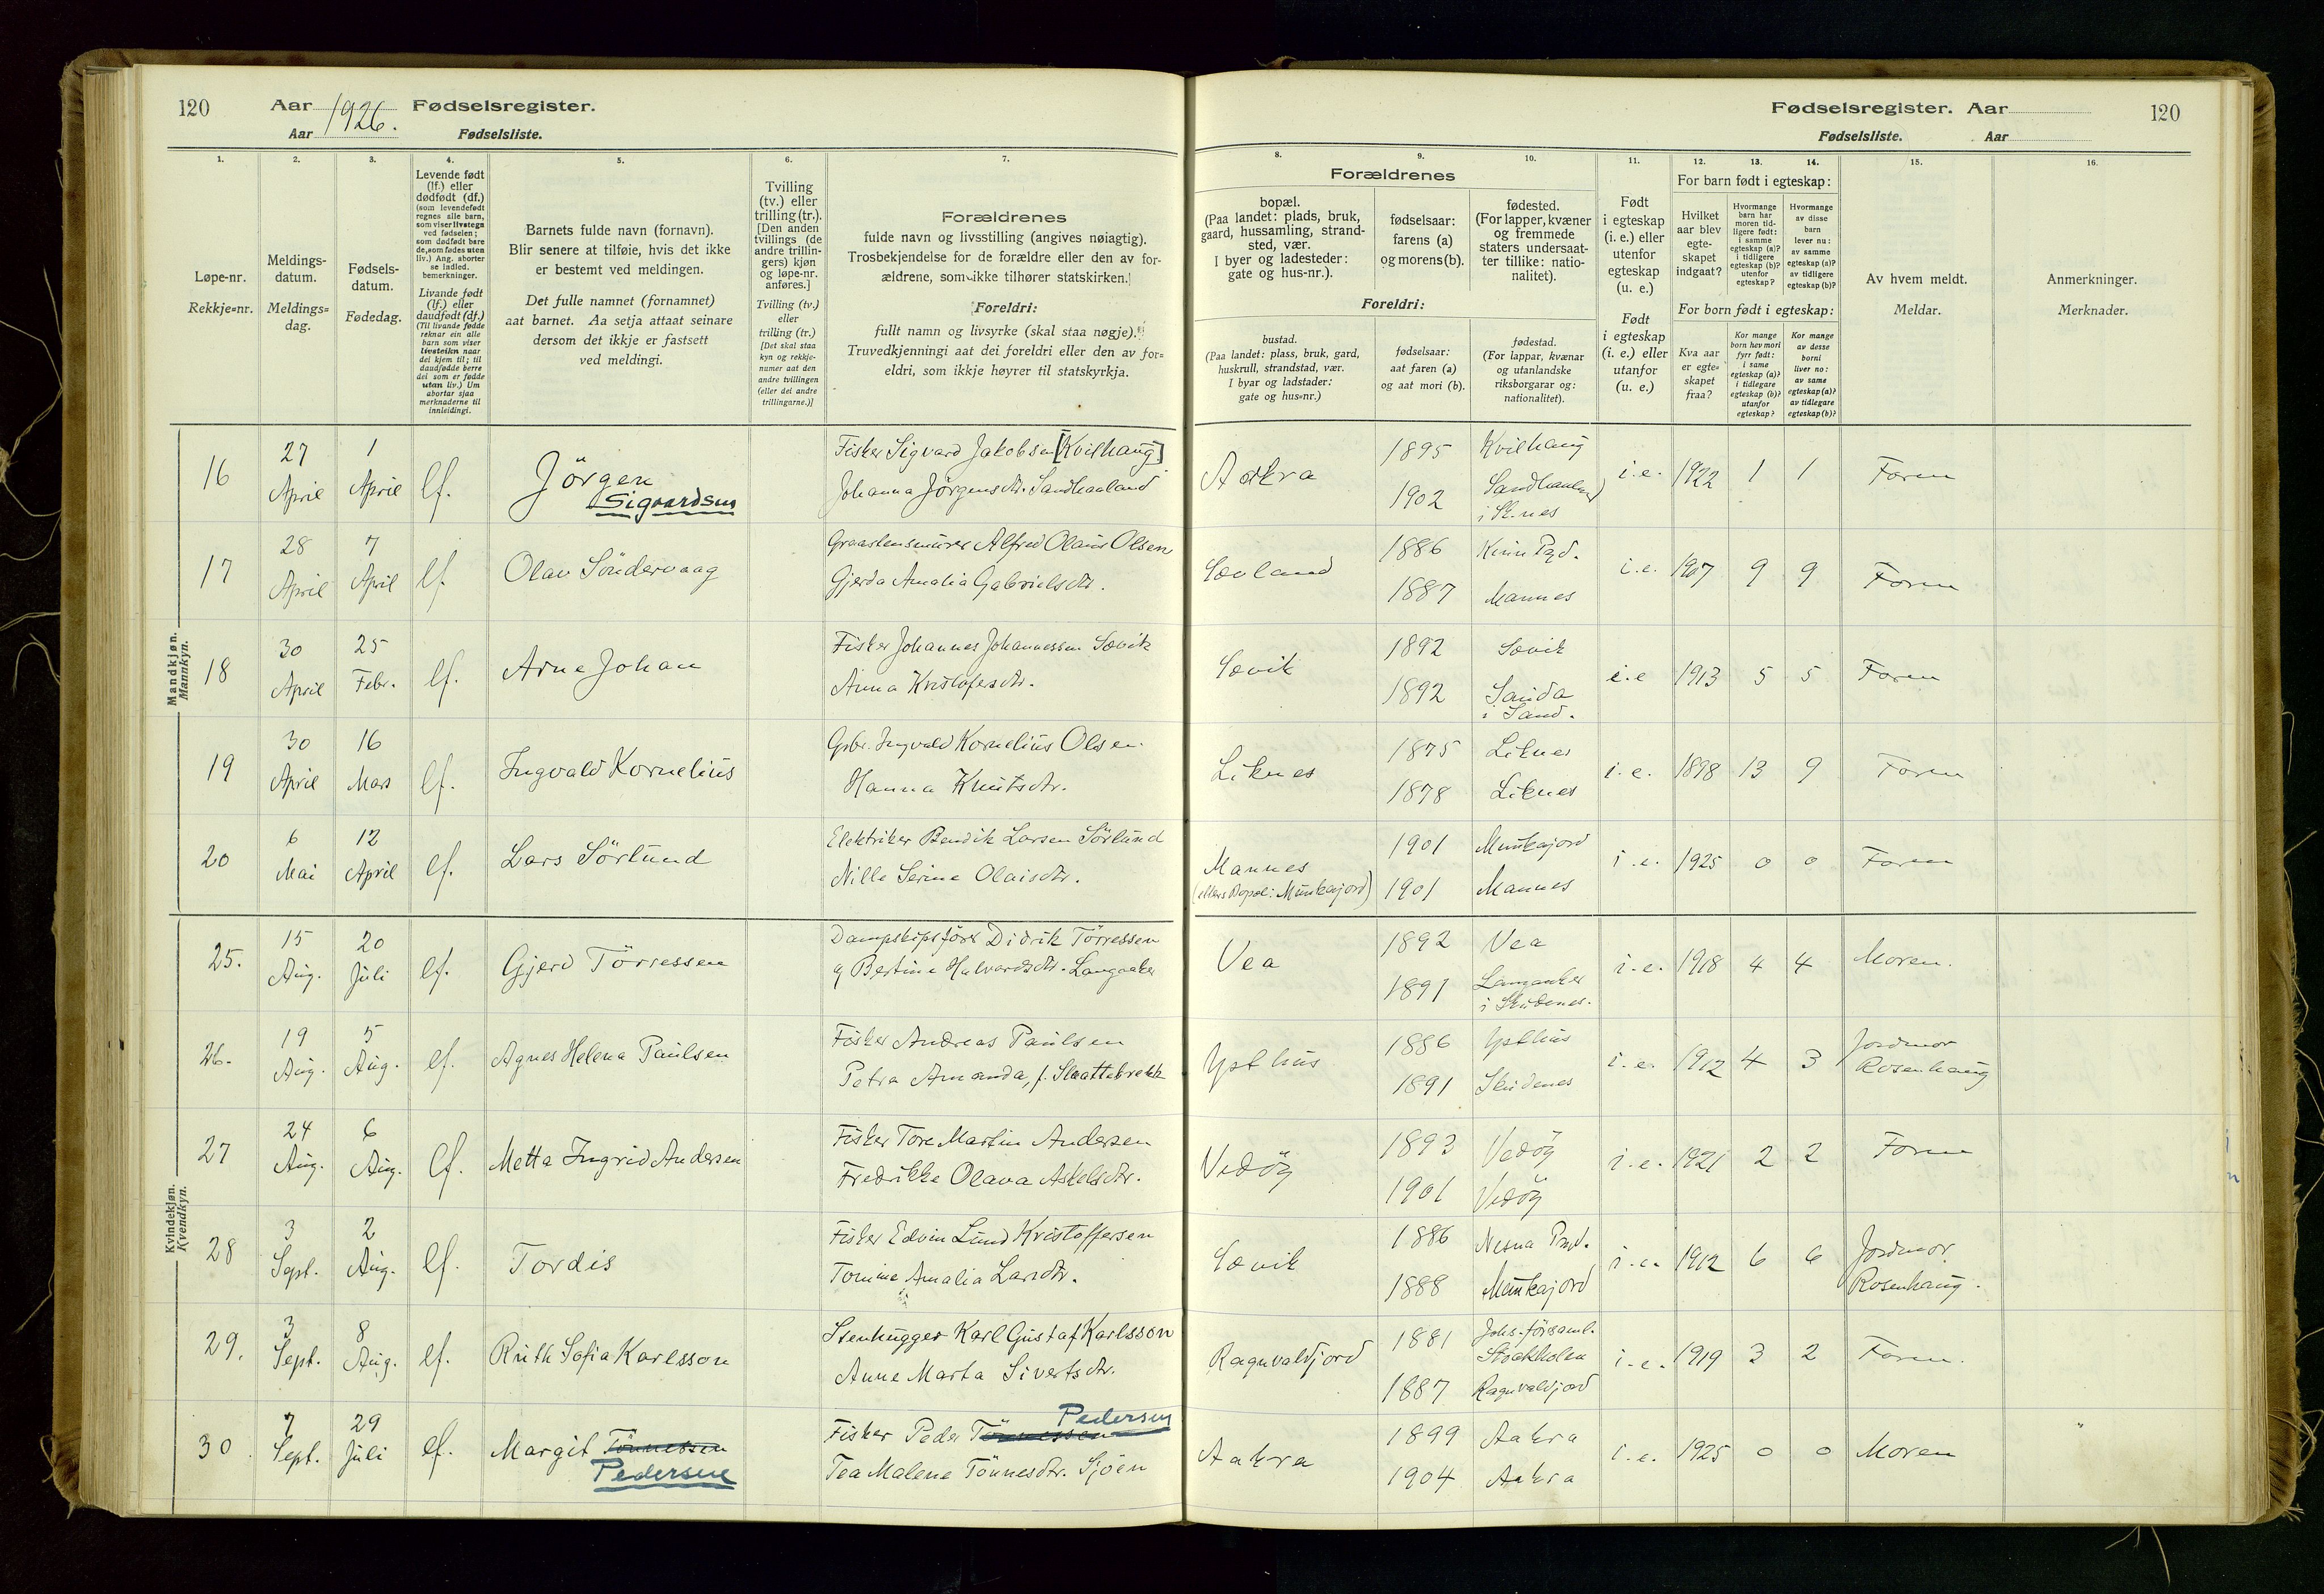 120 Aar 1926. Fødselsregister.
Aar Fødselsliste.
Fødselsregister. Aar 120
Fødselsliste. Aar
1. 2. 3. 4. 5. 6. 7. 8. 9. 10. 11. 12. 13. 14. 15. 16.
Løpe-nr.
Rekkje=nr.
Meldings-
datum.
Meldings=
dag.
Fødsels-
datum.
Fødedag.
Levende født
(lf.) eller
dødfødt (df.)
(som levendefødt
regnes alle barn,
som viser livstegn
ved fødselen;
som dødfødt bare
de, som fødes uten
liv.) Ang. aborter
se indled.
bemerkninger.
Livande født
(lf.) eller
daudfødt (df.)
(Til livande fødde
reknar ein alle
barn som viser
livsteikn naar
dei kjem til; til
daudfødde berre
dei som er fødde
utan liv.) Um
abortar sjaa
merknaderne til
innleidingi.
Barnets fulde navn (fornavn).
Blir senere at tilføie, hvis det ikke
er bestemt ved meldingen.
Det fulle namnet (fornamnet)
aat barnet. Aa setja attaat seinare
dersom det ikkje er fastsett
ved meldingi.
Tvilling
(tv.) eller
trilling (tr.).
[Den anden
tvillings (de
andre trillin-
gers) kjøn
og løpe-nr.
anføres.]
Tvilling (tv.)
eller
trilling (tr.)
[Det skal staa
kyn og rekkje-
numer aat den
andre tvillingen
(eller dei andre
trillingarne.)]
Forældrenes
fulde navn og livsstilling (angives nøiagtig).
Trosbekjendelse for de forældre eller den av for-
ældrene, som ikke tilhører statskirken.
Foreldri:
fullt namn og livsyrke (skal staa nøgje).
Truvedkjenningi aat dei foreldri eller den av for=
eldri, som ikkje høyrer til statskyrkja.
Forældrenes
bopæl.
(Paa landet: plads, bruk,
gaard, hussamling, strand-
sted, vær.
I byer og ladesteder:
gate og hus-nr.).
fødselsaar:
farens (a)
og morens (b).
fødested.
(For lapper, kvæner
og fremmede
staters undersaat-
ter tillike: natio-
nalitet).
Foreldri:
bustad.
(Paa landet: plass, bruk, gard,
huskrull, strandstad, vær.
I byar og ladstader:
gate og hus=nr.)
fødselsaar:
aat faren (a)
og aat mori (b).
fødestad.
(For lappar, kvænar
og utanlandske
riksborgarar og:
nationalitet).
Født
i egteskap
(i. e.) eller
utenfor
egteskap
(u. e.)
Født
i egteskap
(i. e.) eller
utanfor
(u. e.)
For barn født i egteskap:
Hvilket
aar blev
egte-
skapet
indgaat?
Hvormange
barn har
moren tid-
ligere født:
i samme
egteskap (a)?
i tidligere
egteskap (b)?
utenfor
egteskap?
Hvormange
av disse
barn
lever nu:
av samme
egteskap (a)?
av tidligere
egteskap (b)?
For born født i egteskap:
Kva aar
er egte=
skapet
fraa?
Kor mange
born hev mori
fyrr født:
i same
egteskap (a)?
i tidlegare
egteskap (b)?
utanfor
egteskap?
Kor mange
av desse
borni
liver no:
av same
egteskap (a)?
av tidlegare
egteskap (b)?
Av hvem meldt.
Meldar.
Anmerkninger.
Merknader.
Mandkjøn.
Mannkyn.
16 27 April 1 April lf. Jörgen Sigvardsen
Fisker Sigvard Jakobsen [Kvilhaug]
Johanna Jörgensdtr. Sandhaaland
Aakra 1895 Kvilhaug 1902 i Sk.nes i.e. 1922 1 1 Faren
17 28 April 7 April lf. Olav Söndervaag
Graastensmurer Alfred Olaus Olsen
Gjerda Amalia Gabrielsdtr.
Sævland 1886 Kinn Pgd. 1887 Mannes i.e. 1907 9 9 Faren
18 30 April 25 Febr. lf. Arne Johan
Fisker Johannes Johannessen Sævik
Anna Kristofersdtr.
Sævik 1892 Sævik 1892 Sauda i Sand. i.e 1913 5 5 Faren
19 30 April 16 Mars lf. Ingvald Kornelius
Gbr. Ingvald Kornelius Olsen.
Hanna Knutsdtr.
Liknes 1875 Liknes 1878 Liknes i.e. 1898 13 9 Faren
20 6 Mai 12 April lf. Lars Sörlund
Elektriker Bendik Larsen Sörlund
Nille Serine Olaisdtr.
Mannes (ellers Bopæl: Munkajord) 1901 Munkajord 1901 Mannes i.e. 1925 0 0 Faren
Kvindekjøn.
Kvendkyn.
25. 15 Aug. 20 Juli lf. Gjerd Törressen
Dampskipsförer Didrik Törressen
og Bertine Halvardsdtr. Langaaker
Vea 1892 Vea 1891 Langaaker i Skudenes. i.e. 1918 4 4 Moren.
26. 19 Aug. 5 Aug. lf. Agnes Helena Paulsen
Fisker Andreas Paulsen
Petra Amanda, f. Slaattebrekk
Ysthus 1886 Ysthus 1891 Skudenes i.e. 1912 4 3 Jordmor Rosenhaug
27 24 Aug. 6 Aug. lf. Metta Ingrid Andersen
Fisker Tore Martin Andersen
Fredrikke Olava Askelsdtr.
Vedöy 1893 Vedöy 1901 Vedöy i.e. 1921 2 2 Faren
28 3 Sept. 2 Aug. lf. Tordis
Fisker Edvin Lund Kristoffersen
Tomine Amalia Larsdtr.
Sævik 1886 Nesna Pgd. 1888 Munkajord i.e. 1912 6 6 Jordmor Rosenhaug.
29. 3 Sept. 8 Aug. lf. Ruth Sofia Karlsson
Stenhugger Karl Gustaf Karlsson
Anne Marta Sivertsdtr.
Ragnvaldjord 1881 Johs. församl. Stockholm 1887 Ragnvaldjord i.e. 1919 3 2 Faren.
30 7 Sept. 29 Juli lf. Margit Tönnessen Pedersen
Fisker Peder Tönnessen Pedersen
Tea Malene Tönnesdtr. Sjöen
Aakra 1899 Aakra 1904 Aakra i.e. 1925 0 0 Moren